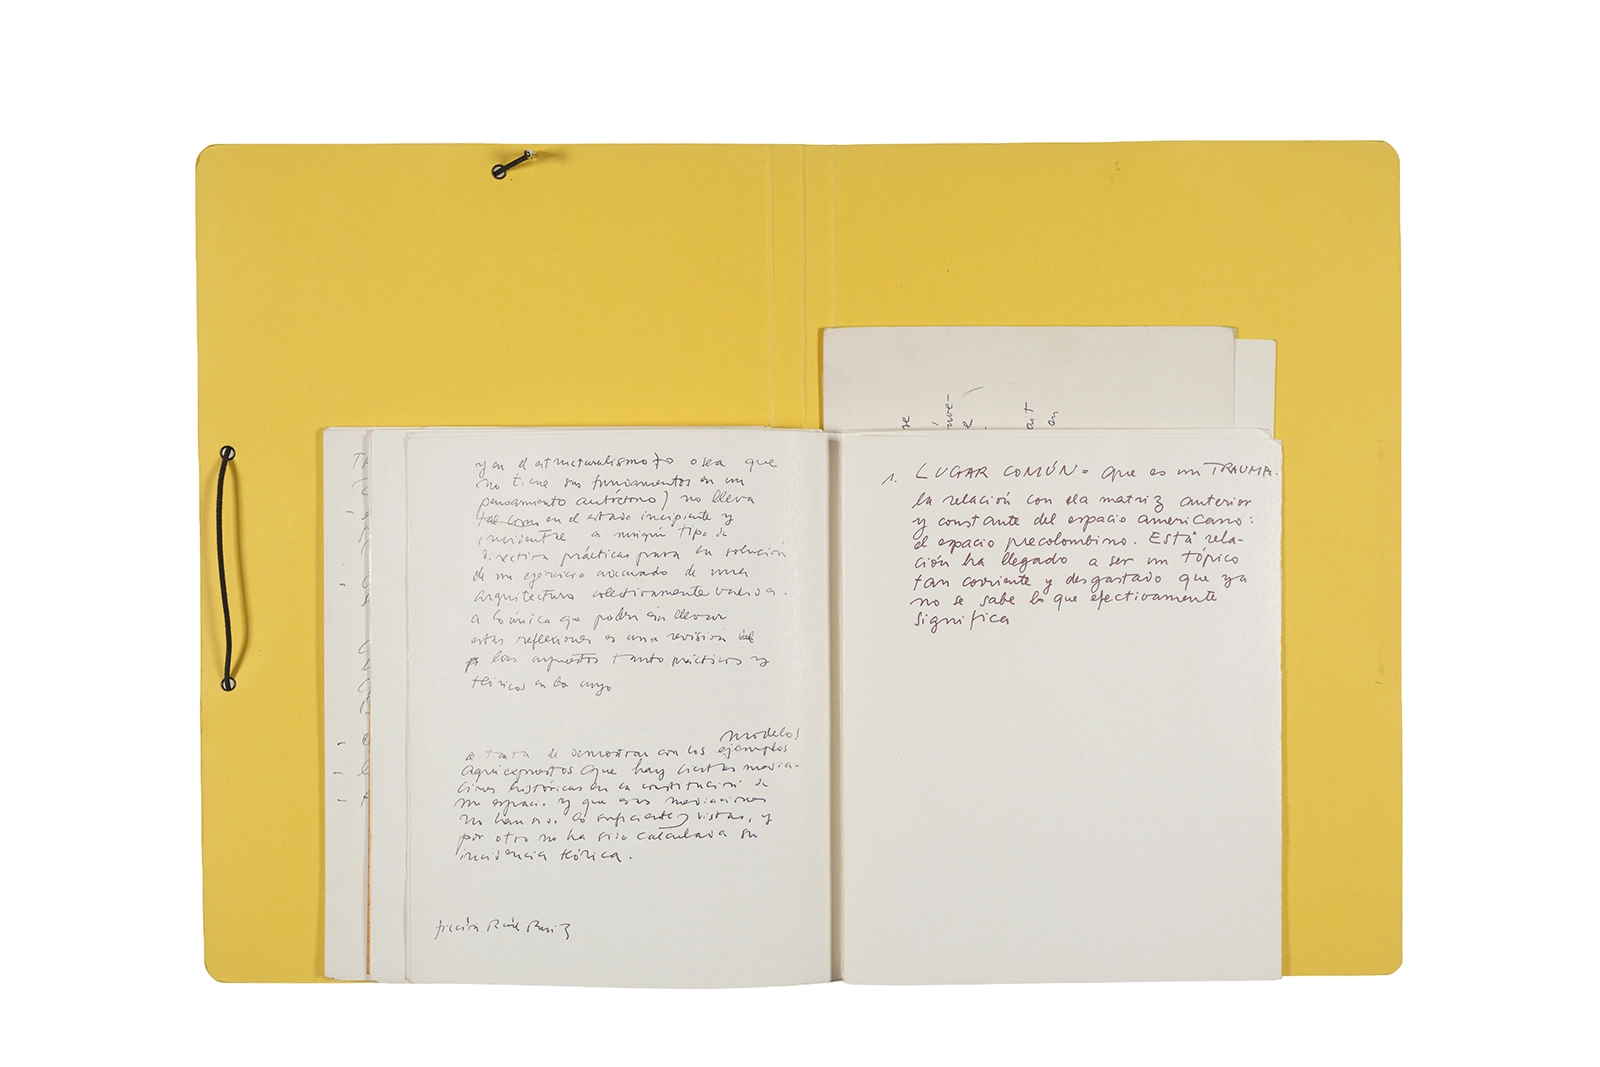 y en el estructuralismo) o sea que
no tiene sus fundamentos en un
pensamiento autóctono) no lleva
en el estado incipiente y
a ningún tipo de
directiva prácticas para la solución
de un ejercicio adecuado de una
arquitectura colectivamente valida.
a lo único que podrían llevar
estas reflexiones es una revisión
los aspectos tanto prácticos y
teóricos en lo
modelos
se trata de demostrar con los ejemplos
aquí expuestos que hay ciertas media-
ciones históricas en la constitución de
un espacio. y que esas mediaciones
no han sido lo suficiente vistas, y
por otro no ha sido calculada su
incidencia teórica.
ficción Raúl Ruiz
se
en
1. LUGAR COMÚN = que es un TRAUMA.
la relación con la matriz anterior
y constante del espacio americano:
el espacio precolombino. Está rela-
ción ha llegado a ser un tópico
tan corriente y desgastado que ya
no se sabe lo que efectivamente
significa